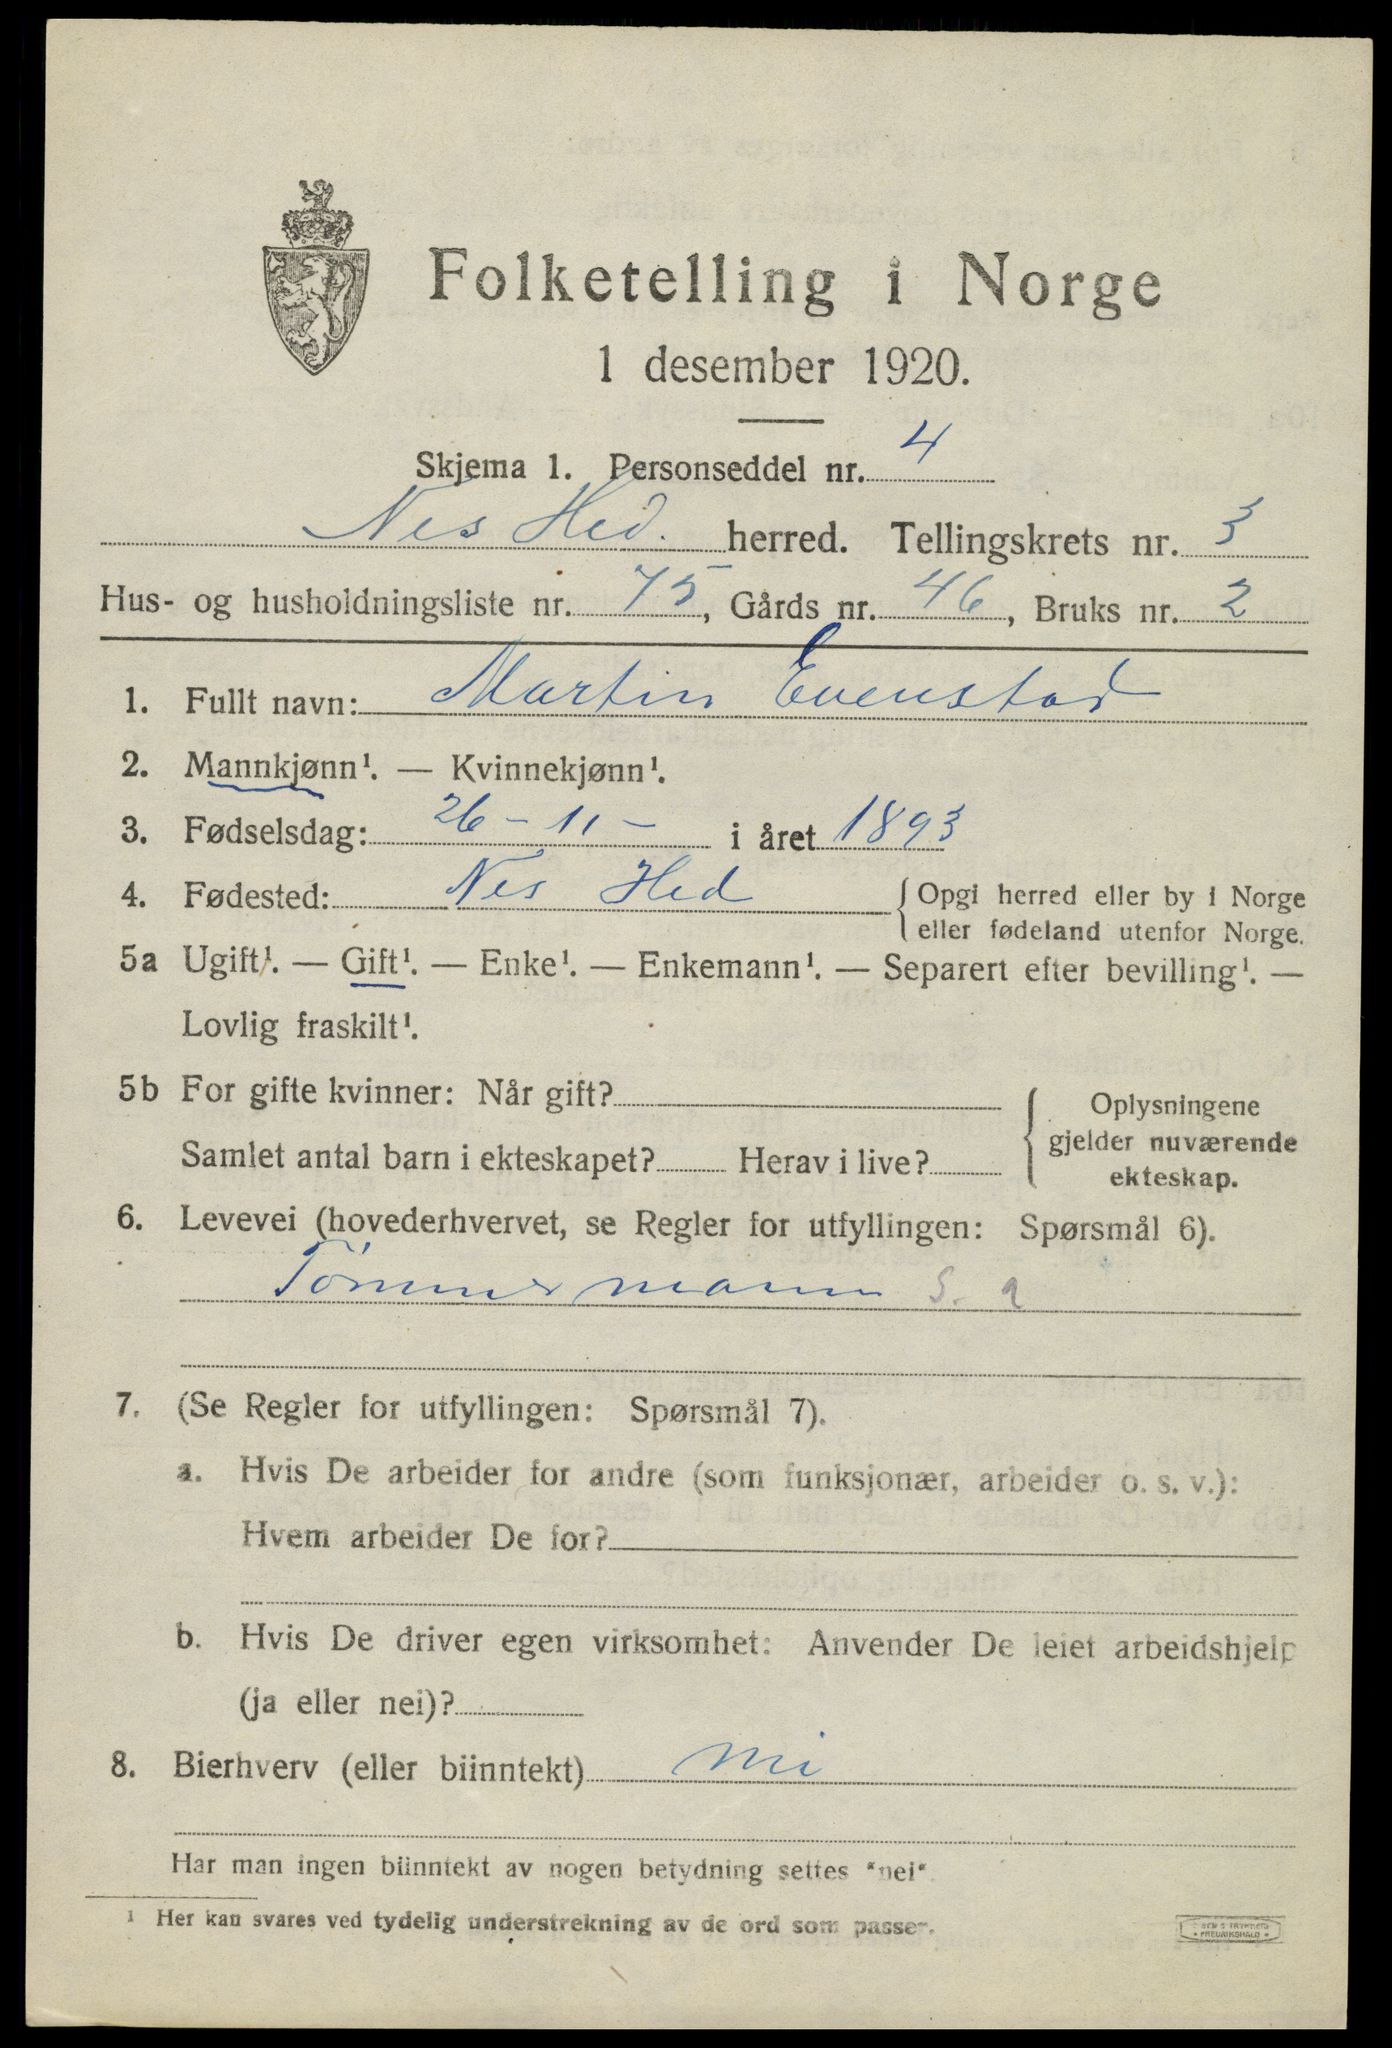 Folketelling i Norge
1 desember 1920.
Skjema 1. Personseddel nr. 4
Nes Hed. herred. Tellingskrets nr. 3
Hus- og husholdningsliste nr. 75, Gårds nr. 46, Bruks nr. 2
1. Fullt navn: Martin Evenstad
2. Mannkjønn¹. — Kvinnekjønn¹.
3. Fødselsdag: 26 - 11 - i året 1893
4. Fødested: Nes Hed { Opgi herred eller by i Norge
eller fødeland utenfor Norge.
5a Ugift¹. — Gift¹. — Enke¹. — Enkemann¹. — Separert efter bevilling¹. —
Lovlig fraskilt¹.
5b For gifte kvinner: Når gift?
Samlet antal barn i ekteskapet? Herav i live?
{ Oplysningene
gjelder nuværende
ekteskap.
6. Levevei (hovederhvervet, se Regler for utfyllingen: Spørsmål 6).
Tömmermann S. a
7. (Se Regler for utfyllingen: Spørsmål 7).
a. Hvis De arbeider for andre (som funksjonær, arbeider o. s. v.):
Hvem arbeider De for?
b. Hvis De driver egen virksomhet: Anvender De leiet arbeidshjelp
(ja eller nei)?
8. Bierhverv (eller biinntekt) nei
Har man ingen biinntekt av nogen betydning settes "nei".
¹ Her kan svares ved tydelig understrekning av de ord som passer.
FREDRIKSHALD